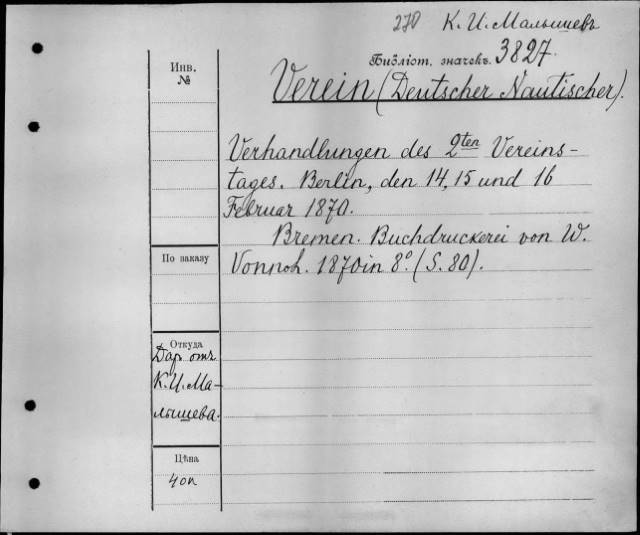 270 К. И. Малышевъ
Библіот. значекъ. 3827.
Инв.
№
Verein (Deutscher Nautischer).
Verhandlungen des 2ten Vereins-
tages. Berlin, den 14, 15 und 16
Februar 1870.
Bremen. Buchdruckerei von W.
Vonnoh. 1870 in 8º. (S. 80).
По заказу
Откуда
Даръ отъ
К. И. Ма-
лышева.
Цѣна
40 к